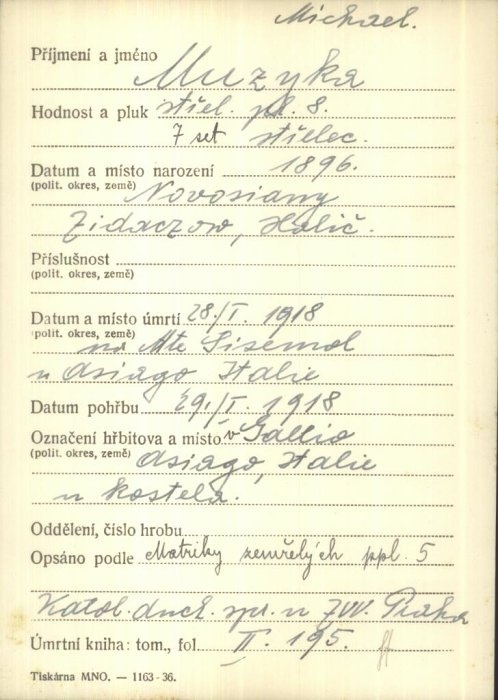 Michael.
Příjmení a jméno Muzyka
Hodnost a pluk střel. pl. 8.
7 set střelec.
Datum a místo narození 1896.
(polit. okres, země) Novosiany
Zidaczow, Halič.
Příslušnost
(polit. okres, země)
Datum a místo úmrtí 28./I. 1918
(polit. okres, země) na Mte Sisemol
u Asiago Italie
Datum pohřbu 29./I. 1918
Označení hřbitova a místo v Gallio
(polit. okres, země) Asiago, Italie
u kostela.
Oddělení, číslo hrobu
Opsáno podle Matriky zemřelých ppl. 5
Katol. duch. spr. u ZVV. Praha
Úmrtní kniha: tom., fol. II. 195.
Tiskárna MNO. — 1163-36.